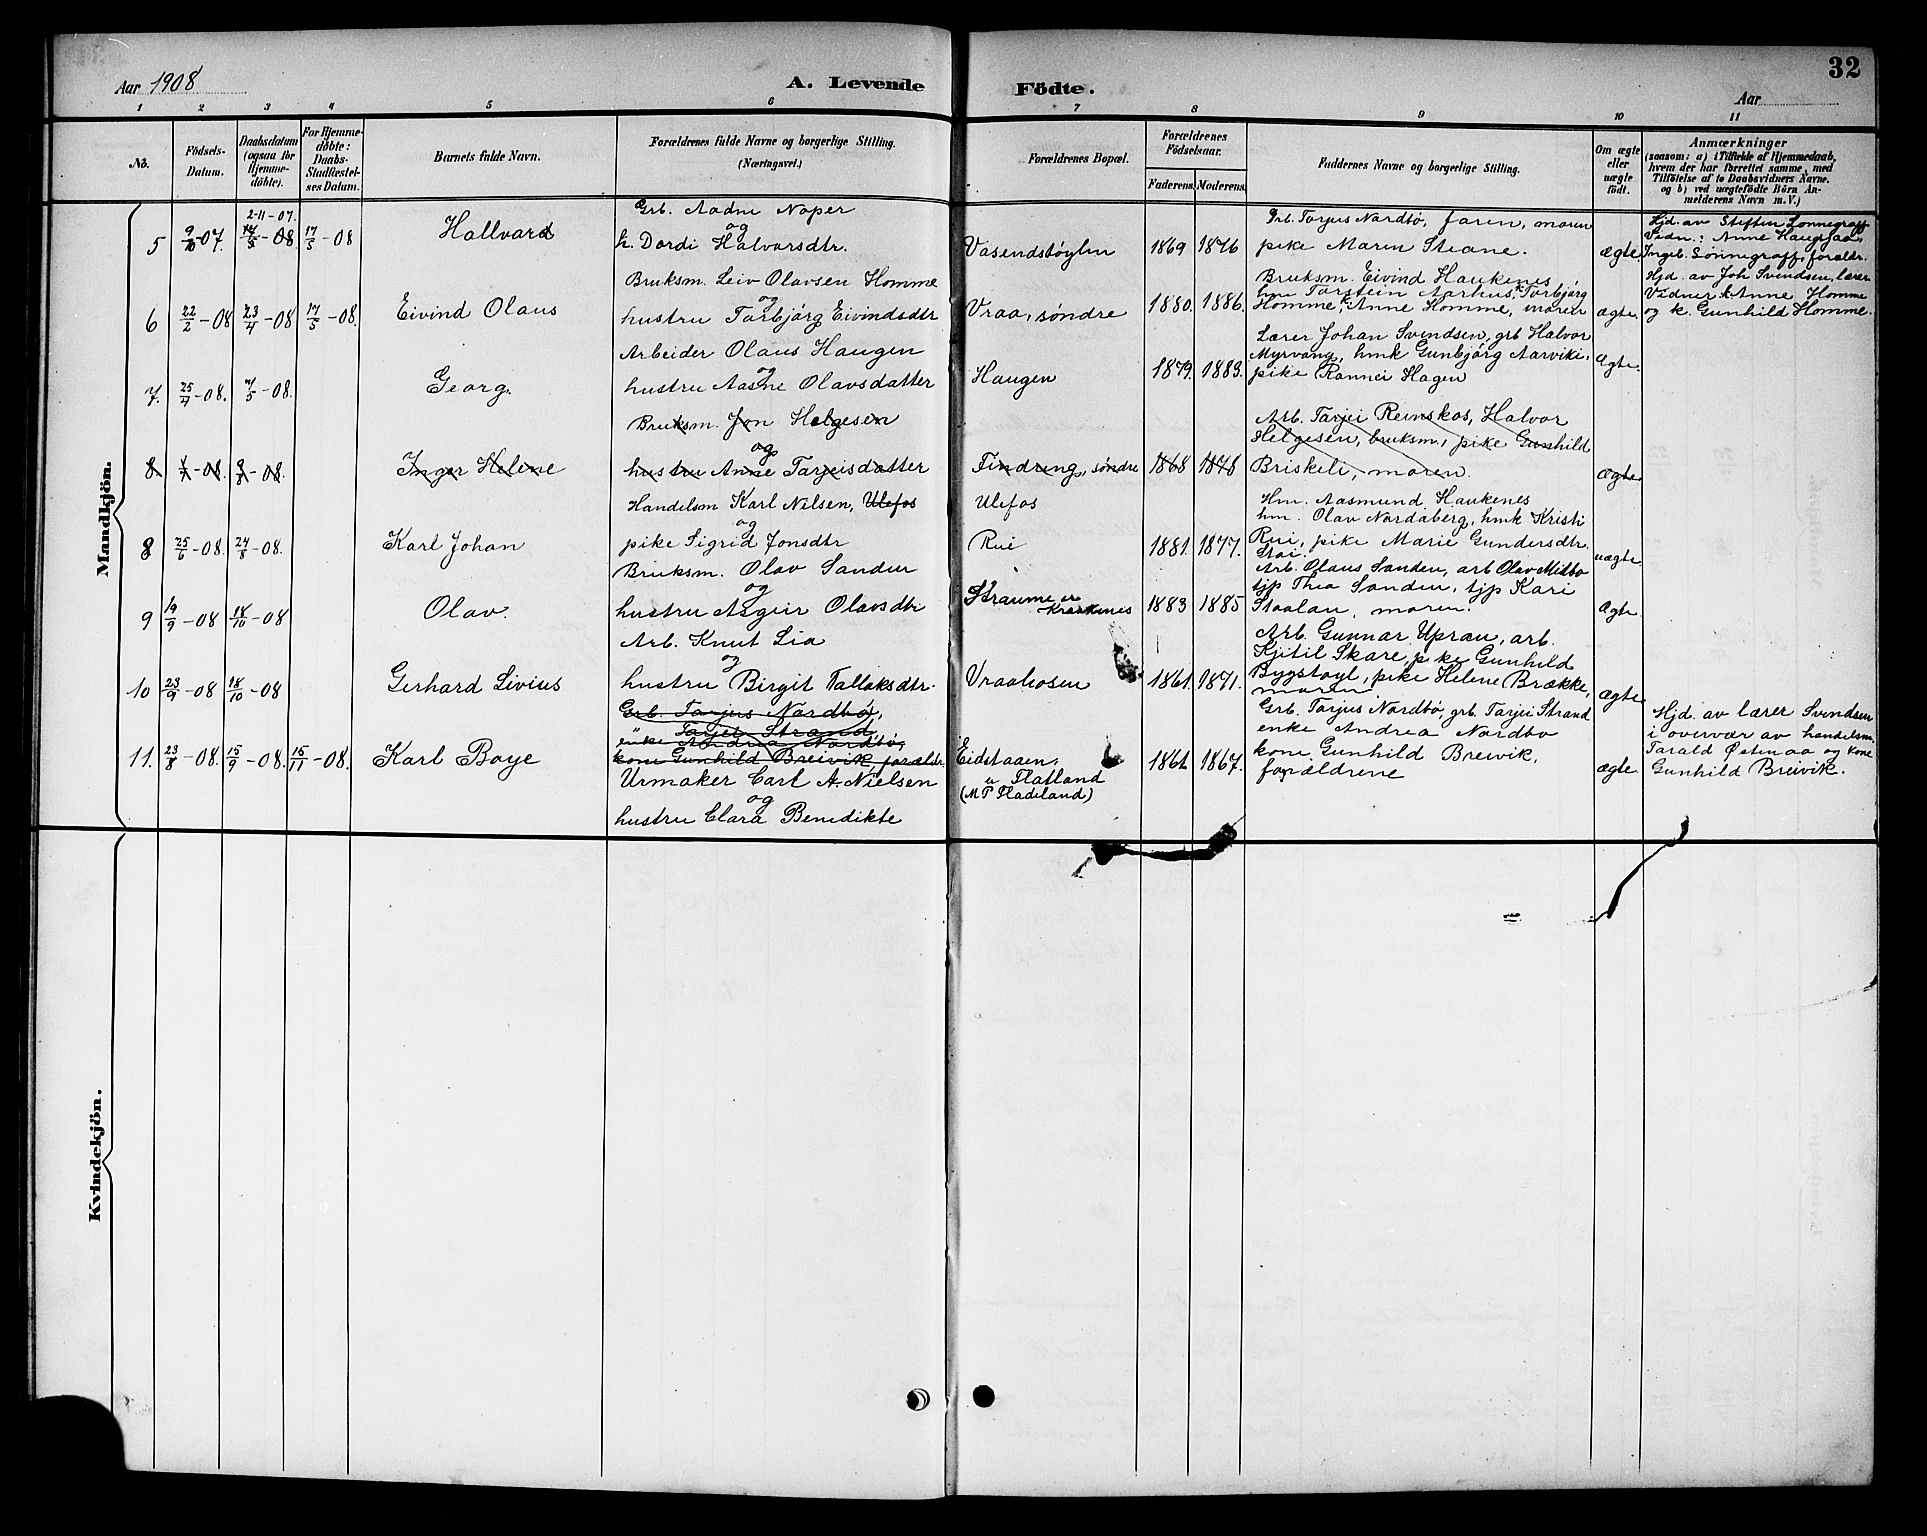 32
Aar 1908
A. Levende Födte.
Aar
1 2 3 4 5 6 7 8 9 10 11
No.
Födsels-Datum.
Daabsdatum (ogsaa for Hjemmedöbte).
For Hjemmedöbte: Daabs-Stadfæstelses Datum.
Barnets fulde Navn.
Forældrenes fulde Navne og borgerlige Stilling.
(Næringsvei.)
Forældrenes Bopæl.
Forældrenes Födselsaar.
Faderens. Moderens.
Faddernes Navne og borgerlige Stilling.
Om ægte eller uægte födt.
Anmærkninger
(saasom: a) i Tilfælde af Hjemmedaab,
hvem der har forrettet samme, med
Tilföielse af to Daabsvidners Navne.
og b) ved uægtefödte Börn An-
melderens Navn m.V.)
Mandkjön.
5 9/10-07. 2-11-07. 14/5-08. 17/5-08 Hallvard
Grb. Aadne Noper
og
h. Dordi Halvorsdtr.
Vasendstøylen 1869 1876
Grb. Tarjus Nordbö, faren, moren
pike Maren Steane.
ægte
Hjd. av Steffen Lønnegraff
Vidn.: Anne Haugsaa,
Ingeb. Lønnegraff, forældr.
6 22/2-08 23/4-08 17/5-08. Eivind Olaus
Bruksm. Leiv Olavsen Homme
og
hustru Torbjörg Eivindsdtr
Vraa, søndre 1880. 1886.
Bruksm. Eivind Haukenes
hm Torstein Aarhus, k Torbjörg
Homme, k. Anne Homme, moren
ægte.
Hjd. av Joh Svendsen, lærer.
Vidner: k. Anne Homme
og k. Gunhild Homme.
7. 25/4-08. 7/5-08. Georg.
Arbeider Olaus Haugen
og
hustru Aasne Olavsdatter
Haugen 1879. 1883.
Lærer Johan Svendsen, grb Halvor
Myrvang, hmk Gunbjörg Aarviki,
pike Rannei Hagen
Ægte.
8. Inger Helene
Bruksm. Jon Helgesen
og
hustru Anne Tarjeisdatter
Findreng, søndre 1868 1878
Arb. Tarjei Reinskos, Halvor
Helgesen, bruksm., pike Gunhild
Briskeli, moren.
Ægte
8 25/6-08. 24/8-08. Karl Johan
Handelsm Karl Nilsen, Ulefos
og
pike Sigrid Jonsdtr
Ulefos
Rui 1881. 1877.
Hm. Aasmund Haukenes
hm. Olav Nordaberg, hmk Kristi
Rui, pike Marie Gundersdtr.
Stai.
uægte
9 19/9-08 18/10-08 Olav.
Bruksm. Olav Sanden
og
hustru Asgeir Olavsdtr
Straume
Kraakenes 1883 1885
Arb. Olaus Sanden, arb Olav Midbo
tjp Thea Sanden, tjp Kari
Staalan, moren.
Ægte
10 23/9-08 18/10-08 Gerhard Livius
Arb. Knut Lia
og
hustru Birgit Tallaksdtr.
Vraahosen 1861. 1871.
Arb. Gunnar Uprau, arb.
Kjetil Skare, pike Gunhild
Bygstøyl, pike Helene Brække,
moren
ægte
11. 23/8-08. 15/9-08. 15/11-08. Karl Boye
Grb. Tarjus Nordbø,
" Tarjei Strand,
enke Andrea Nordbø,
kone Gunhild Breivik, forældr.
Urmaker Carl A. Nielsen
og
hustru Clara Benedikte
Eidstaaen,
u Flatland
(M P Fladeland) 1861 1867.
Grb. Tarjus Nordbö, grb. Tarjei Strand
enke Andrea Nordbo
kone Gunhild Breivik,
forældrene
ægte
Hjd. av lærer Svendsen
i overvær av handelsm.
Tarald Østenaa og kone
Gunhild Breivik.
Kvindekjön.